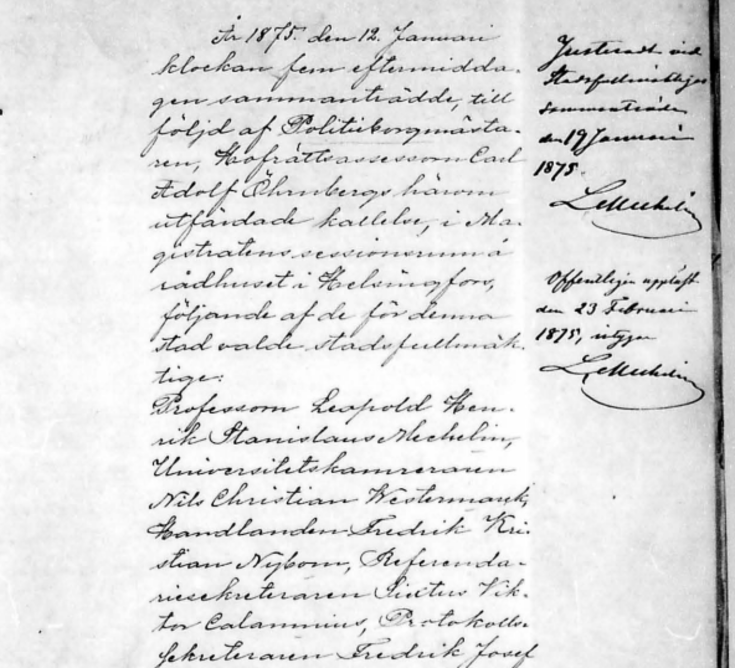 År 1875 den 12. Januari
klockan fem eftermidda-
gen sammanträdde, till
följd af Politieborgmästa-
ren, Hofrättsassessorn Carl
Adolf Öhrnbergs härom
utfärdade kallelse, i Ma-
gistratens sessionsrum å
rådhuset i Helsingfors,
följande af de för denna
stad valde stadsfullmäk-
tige:
Professorn Leopold Hen-
rik Stanislaus Mechelin,
Universitetskamreraren
Nils Christian Westermarck,
Handlanden Fredrik Kri-
stian Nybom, Referenda-
riesekreteraren Sixtus Vik-
tor Calamnius, Protokolls-
sekreteraren Fredrik Josef
Justeradt vid
Stadsfullmäktiges
sammanträde
den 19 Januari
1875.
LMechelin
Offentligen uppläst
den 23 Februari
1875, intygar
LMechelin